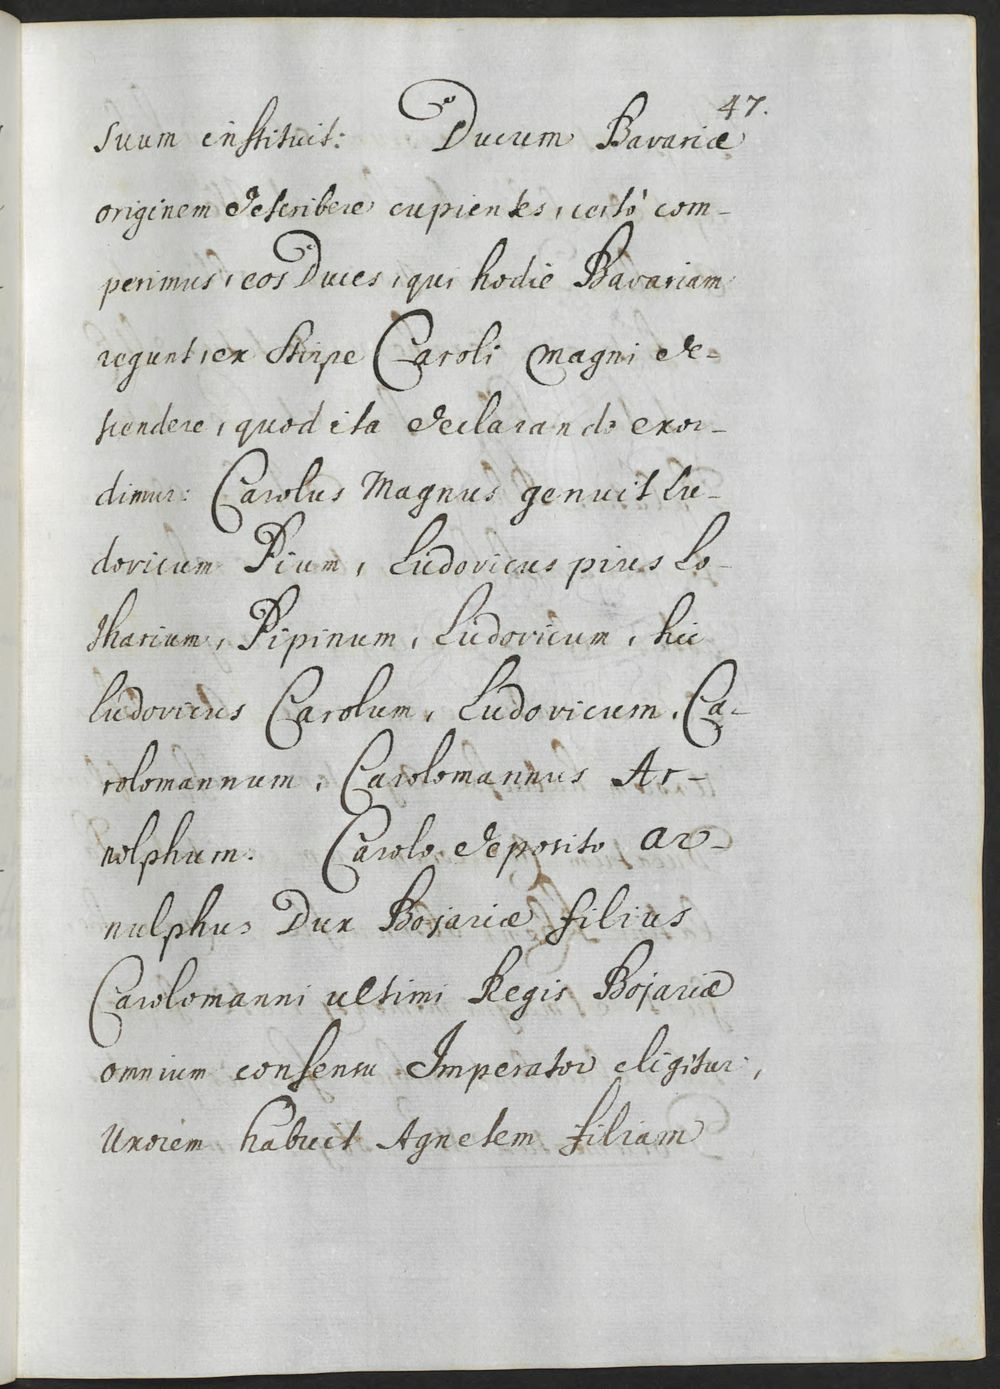 47.
suum instituit: Ducum Bavariæ
originem describere cupientes, certò com-
perimus, eos Duces, qui hodie Bavariam
regunt, ex stirpe Caroli magni de-
scendere, quod ita declarando exor-
dimur: Carolus Magnus genuit Lu-
dovicum Pium, Ludovicus pius Lo-
tharium, Pipinum, Ludovicum, hic
Ludovicus Carolum, Ludovicum, Ca-
rolomannum, Carolomannus Ar-
nolphum. Carolo deposito ar-
nulphus Dux Bojariæ filius
Carolomanni ultimi Regis Bojariæ
omnium consensu Imperator eligitur,
Uxorem habuit Agnetem filiam